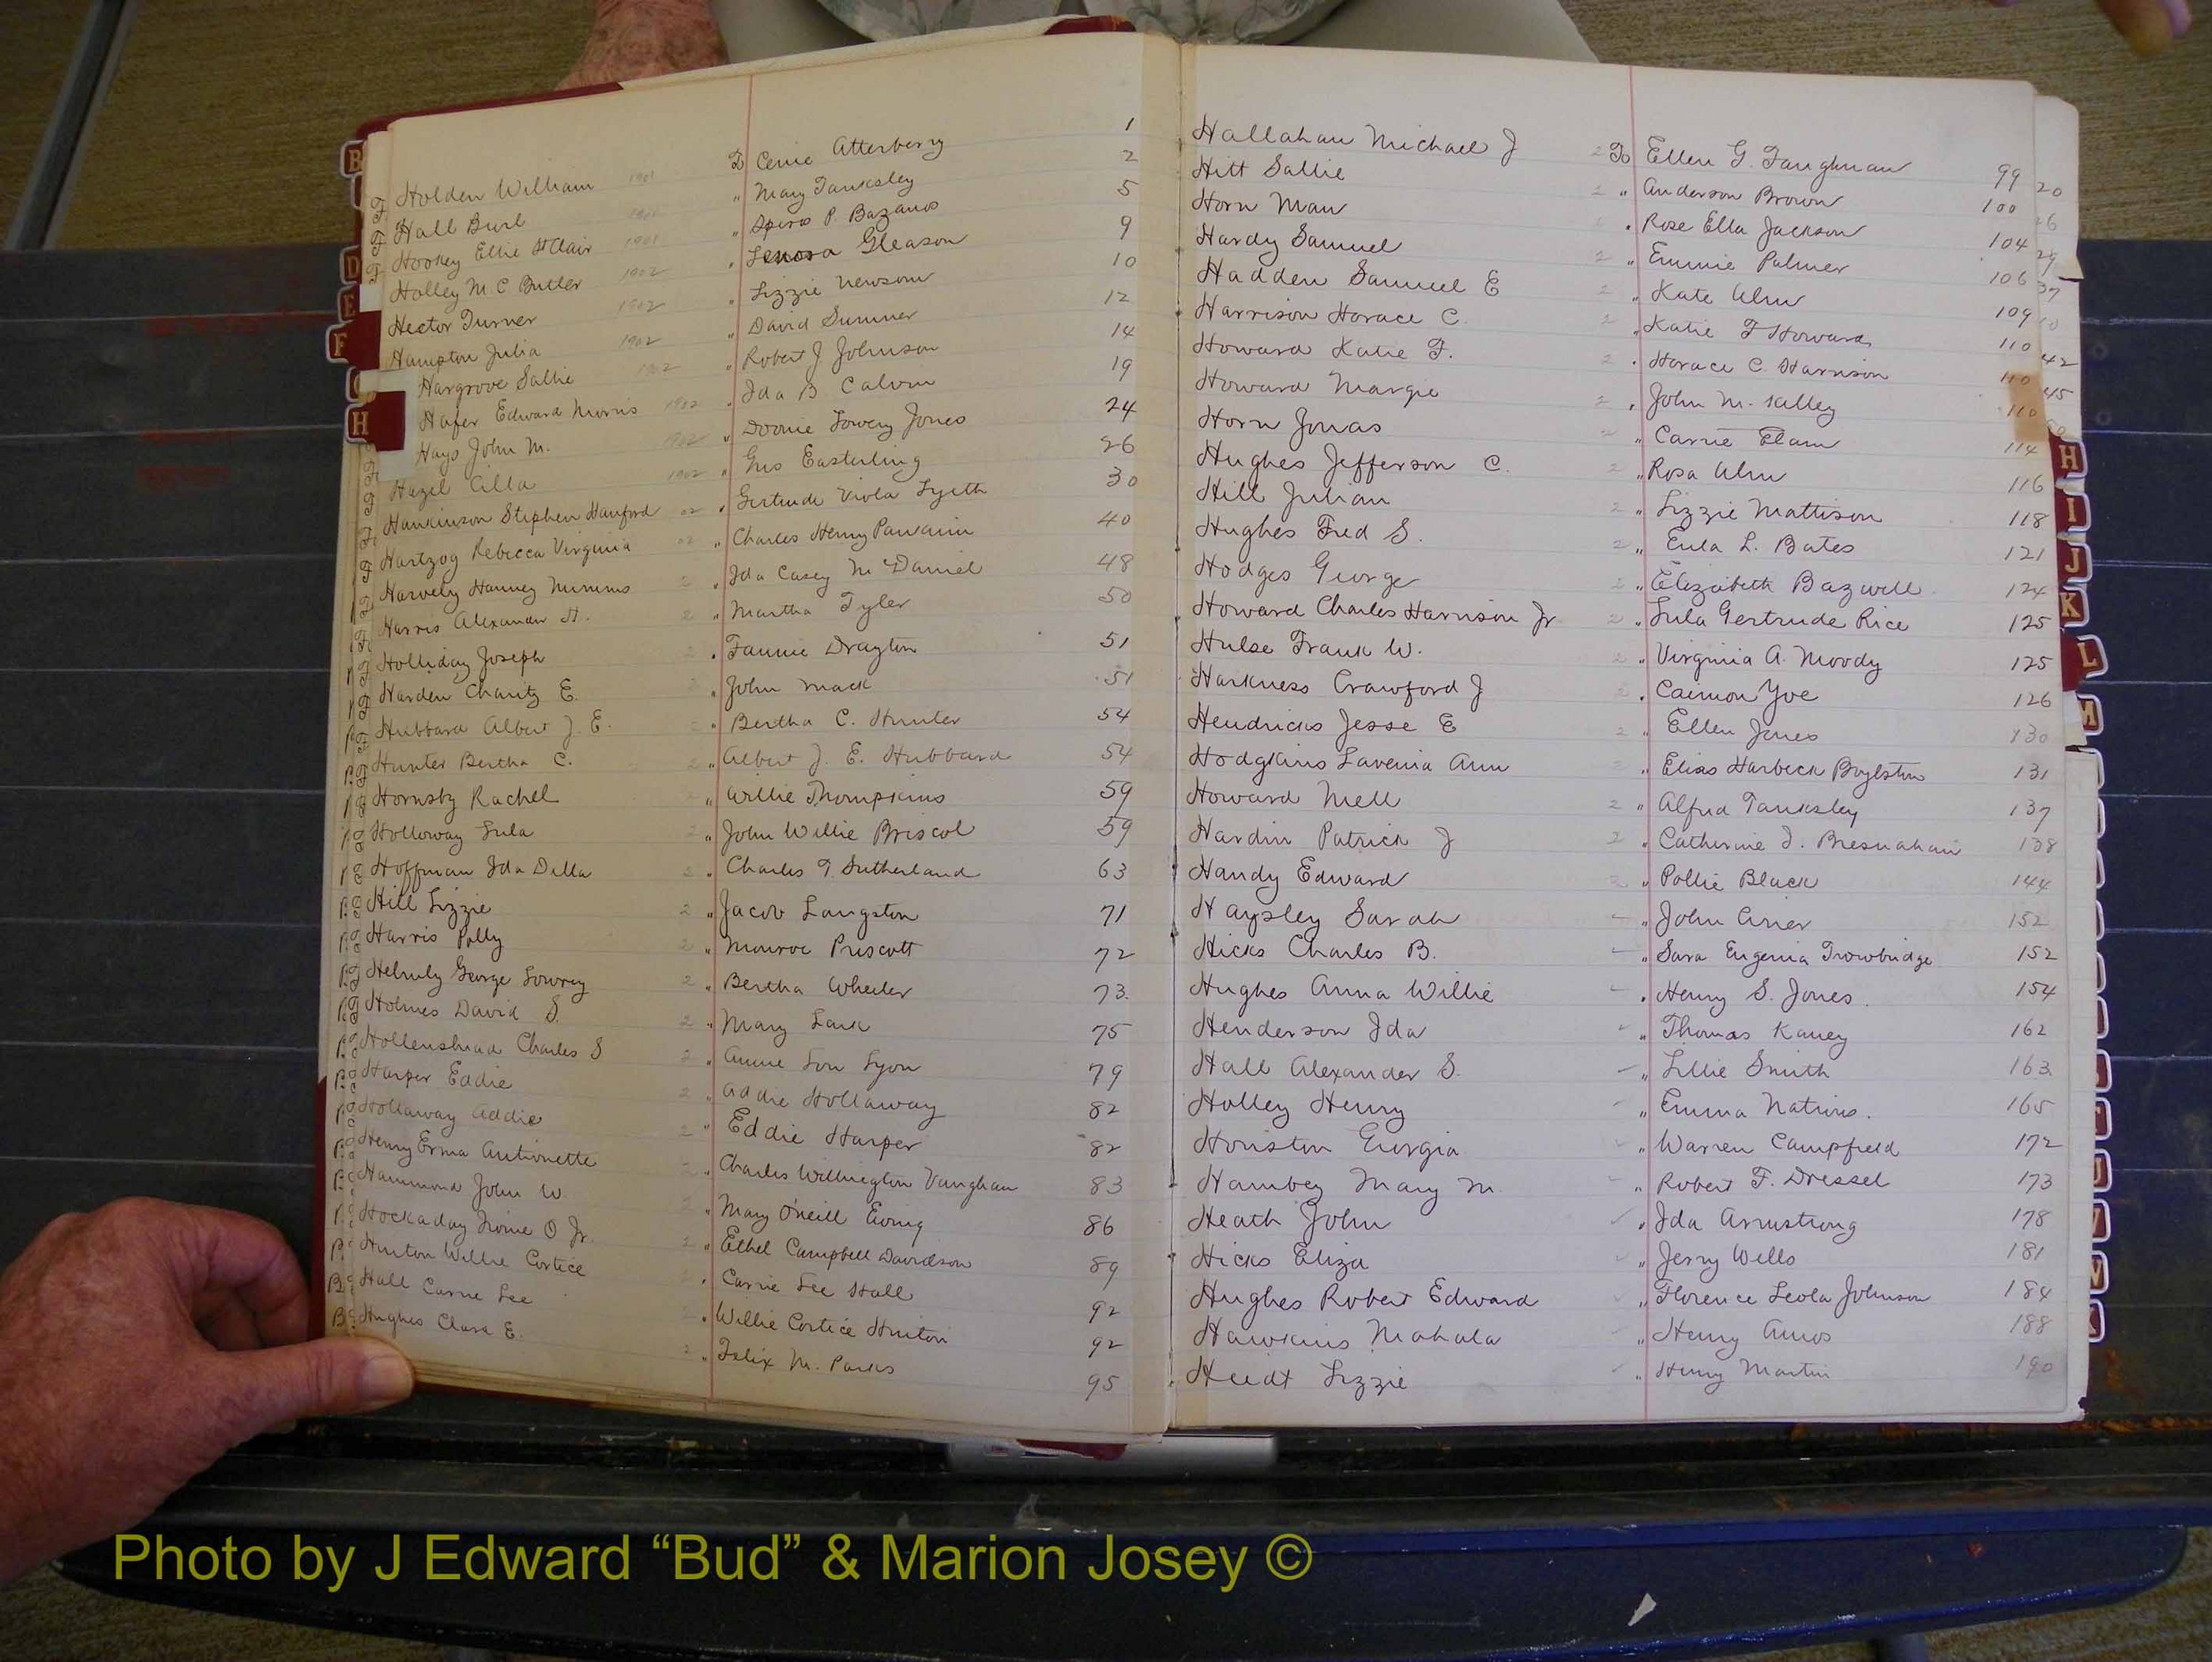 Holden William 1901 To Cenie Atterbery 1
Hall Burl 1901 " Mary Tanksley 2
Hookey Ellie St Clair 1901 " Spiros P. Bazanos 5
Holley M C Butler 1902 " Lenora Gleason 9
Hector Turner 1902 " Lizzie Newsom 10
Hampton Julia 1902 " David Sumner 12
Hargrove Sallie 1902 " Robert J Johnson 14
Hafer Edward Morris 1902 " Ida B. Calvin 19
Hays John M. 1902 " Doonie Lowery Jones 24
Hazel Cilla 1902 " Gus Easterling 26
Hankinson Stephen Hanford 02 " Gertrude Viola Lyeth 30
Hartzog Rebecca Virginia 02 " Charles Henry 40
Harvely Hanney Nimmns 2 " Ida Casey McDaniel 48
Harris Alexander H. 2 " Martha Tyler 50
Holliday Joseph 2 " Fannie Drayton 51
Harden Charity E. 2 " John Mack 51
Hubbard Albert J. E. 2 " Bertha C. Hunter 54
Hunter Bertha C. 2 " Albert J. E. Hubbard 54
Hornsby Rachel 2 " Willie Thompkins 59
Holloway Lula 2 " John Willie Briscol 59
Hoffman Ida Della 2 " Charles T. Sutherland 63
Hill Lizzie 2 " Jacob Langston 71
Harris Polly 2 " Monroe Priscott 72
Helmly George Lowrey 2 " Bertha Wheeler 73
Holmes David S. 2 " Mary Lark 75
Hollenshead Charles S 2 " Annie Lou Lyon 79
Harper Eddie 2 " Addie Hollaway 82
Hollaway Addie 2 " Eddie Harper 82
Henry Erma Antionette 2 " Charles Willington Vaughan 83
Hammond John W. 2 " Mary O'neill Ewing 86
Hockaday Irvine O Jr. 2 " Ethel Campbell Davidson 89
Hinton Willie Cortice " Carrie Lee Hall 92
Hall Carrie Lee 2 " Willie Cortice Hinton 92
Hughes Clara E. 2 " Felix M. Parks 95
Hallahan Michael J 2 To Ellen G. Faughnan 99
Hitt Sallie 2 " Anderson Brown 100
Horn Man " Rose Ella Jackson 104
Hardy Samuel 2 " Emmie Palmer 106
Hadden Samuel E 2 " Kate Ulm 109
Harrison Horace C. 2 " Katie F Howard 110
Howard Katie F. 2 " Horace C. Harrison 110
Howard Margie 2 " John M. Kelley 110
Horn Jonas 2 " Carrie Elam 114
Hughes Jefferson C. 2 " Rosa Ulm 116
Hill Julian 2 " Lizzie Mattison 118
Hughes Fred S. 2 " Eula L. Bates 121
Hodges George 2 " Elizabeth Bazwell 124
Howard Charles Harrison Jr 2 " Lula Gertrude Rice 125
Hulse Frank W. 2 " Virginia A. Moody 125
Harkness Crawford J 2 " Caemon Yoe 126
Hendricks Jesse E 2 " Ellen Jones 130
Hodgkins Lavenia Ann 2 " Elias Harbeck Boylston 131
Howard Mell 2 " Alfred Tanksley 137
Hardin Patrick J 2 " Catherine I. Bresnahan 138
Handy Edward 2 " Pollie Black 144
Haysley Sarah " John Crier 152
Hicks Charles B. " Sara Eugenia Trowbridge 152
Hughes Anna Willie " Henry S. Jones 154
Henderson Ida " Thomas Kaney 162
Hall Alexander S. " Lillie Smith 163
Holley Henry " Emma Nations. 165
Houston Georgia " Warren Campfield 172
Hambey Mary M. " Robert F. Dressel 173
Heath John " Ida Armstrong 178
Hicks Eliza " Jerry Wells 181
Hughes Robert Edward " Florence Leola Johnson 184
Hawkins Mahala " Henry Amos 188
Heidt Lizzie " Henry Martin 190
B
D
E
F
H
H
I
J
K
L
M
Photo by J Edward “Bud” & Marion Josey ©